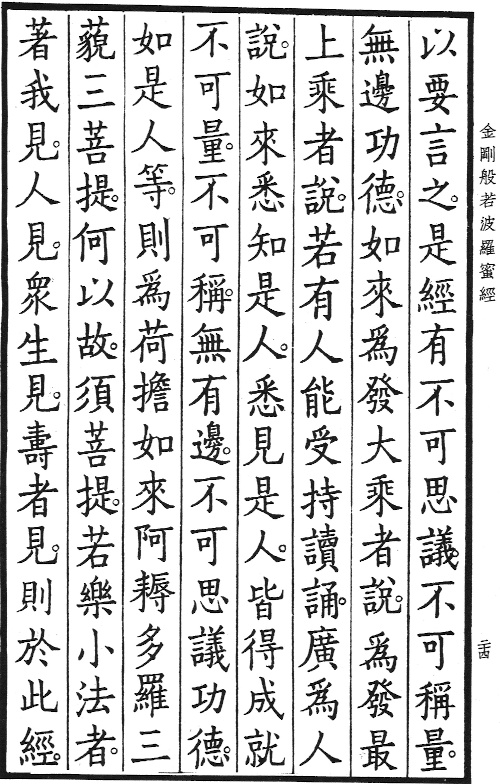 金剛般若波羅蜜經
二十四
以要言之。是經有不可思議。不可稱量。
無邊功德。如來爲發大乘者說。爲發最
上乘者說。若有人能受持讀誦。廣爲人
說。如來悉知是人。悉見是人。皆得成就
不可量。不可稱。無有邊。不可思議功德。
如是人等。則爲荷擔如來阿耨多羅三
藐三菩提。何以故。須菩提。若樂小法者。
著我見。人見。眾生見。壽者見。則於此經。